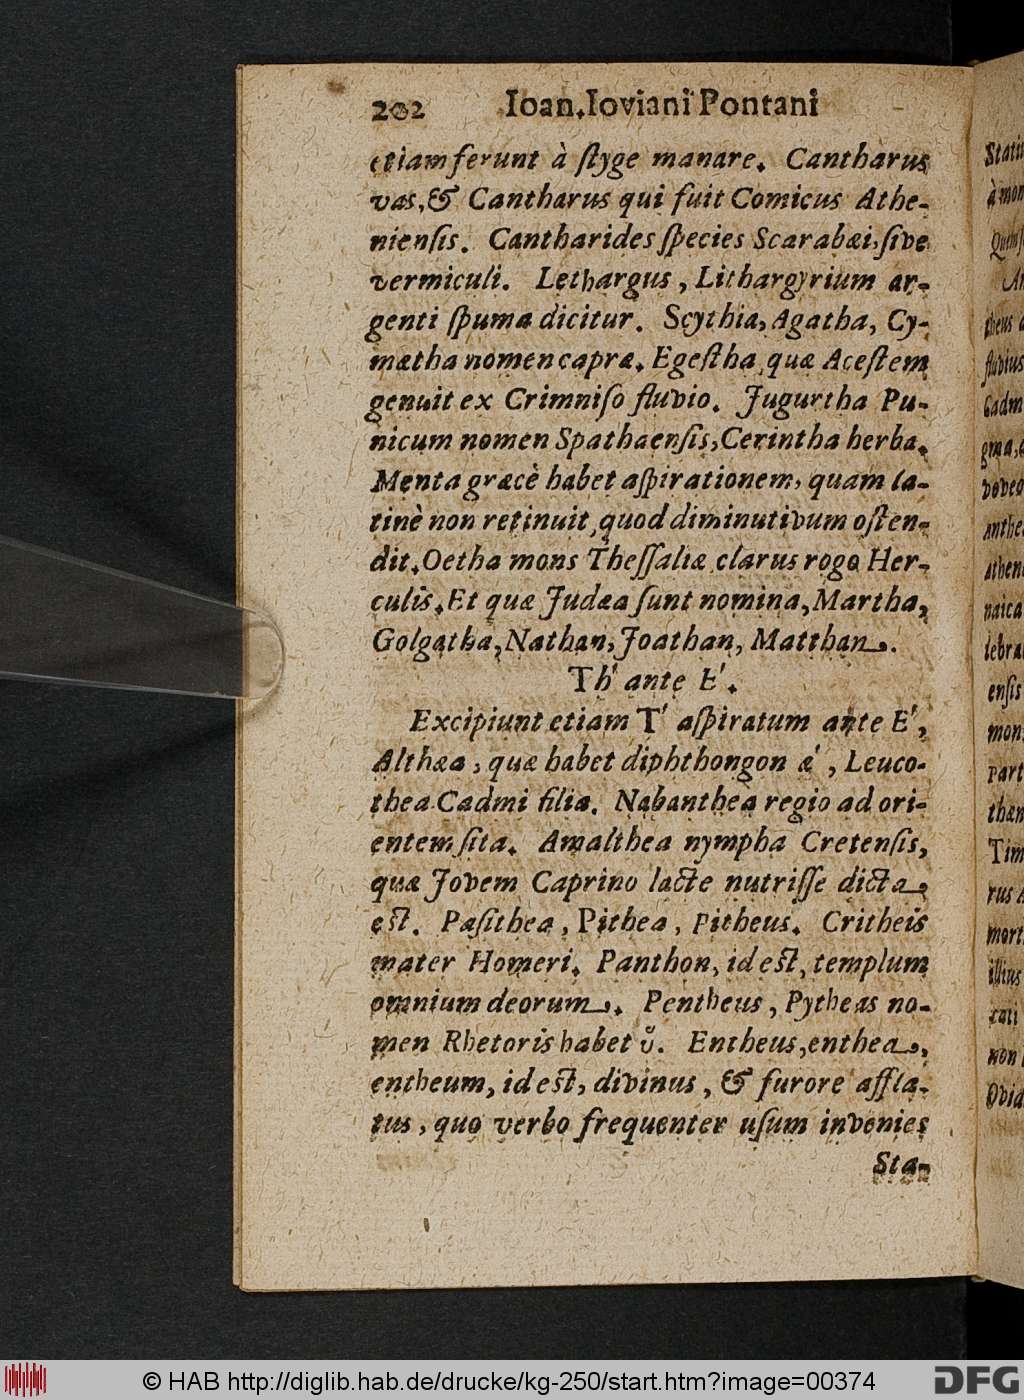 202 Ioan. Ioviani Pontani
etiam ferunt à ſtyge manare. Cantharus
vas, & Cantharus qui fuit Comicus Athe-
nienſis. Cantharides ſpecies Scarabæi, ſive
vermiculi. Lethargus, Lithargyrium ar-
genti ſpuma dicitur. Scythia, Agatha, Cy-
mætha nomen capræ. Egeſtha quæ Aceſtem
genuit ex Crimniſo fluvio. Jugurtha Pu-
nicum nomen Spathaenſis, Cerintha herba.
Menta græcè habet aſpirationem, quam la-
tinè non retinuit, quod diminutivum oſten-
dit. Oetha mons Theſſaliæ clarus rogo Her-
culis. Et quæ Judæa ſunt nomina, Martha,
Golgatha, Nathan, Joathan, Matthan.
Th' ante E'.
Excipiunt etiam T' aſpiratum ante E',
Althæa, quæ habet diphthongon æ', Leuco-
thea Cadmi filia. Nabanthea regio ad ori-
entem ſita. Amalthea nympha Cretenſis,
quæ Jovem Caprino lacte nutriſſe dicta
eſt. Paſithea, Pithea, Pitheus. Critheis
mater Homeri. Panthon, id eſt, templum
omnium deorum. Pentheus, Pytheas no-
men Rhetoris habet v̆. Entheus, enthea,
entheum, id eſt, divinus, & furore affla-
tus, quo verbo frequenter uſum invenies
Sta-
Statii
à mon
fluvius
Cadm
gma,
Anthe
Athen
naica
lebra
enſis
mon
Part
thæn
Tim
rus A
mort
illius
non
Ovid
© HAB http://diglib.hab.de/drucke/kg-250/start.htm?image=00374
DFG